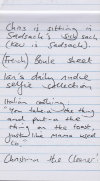 Chas is sitting in
Sadsack's sack
(Kev is Sadsack).
(French) Boule sheet
Ken's daily nudie
selfie collection
Italian cooking:
"You take a the thing
and put-a the
thing on the toast,
just like Mama used
to."
Christina the Cleaner